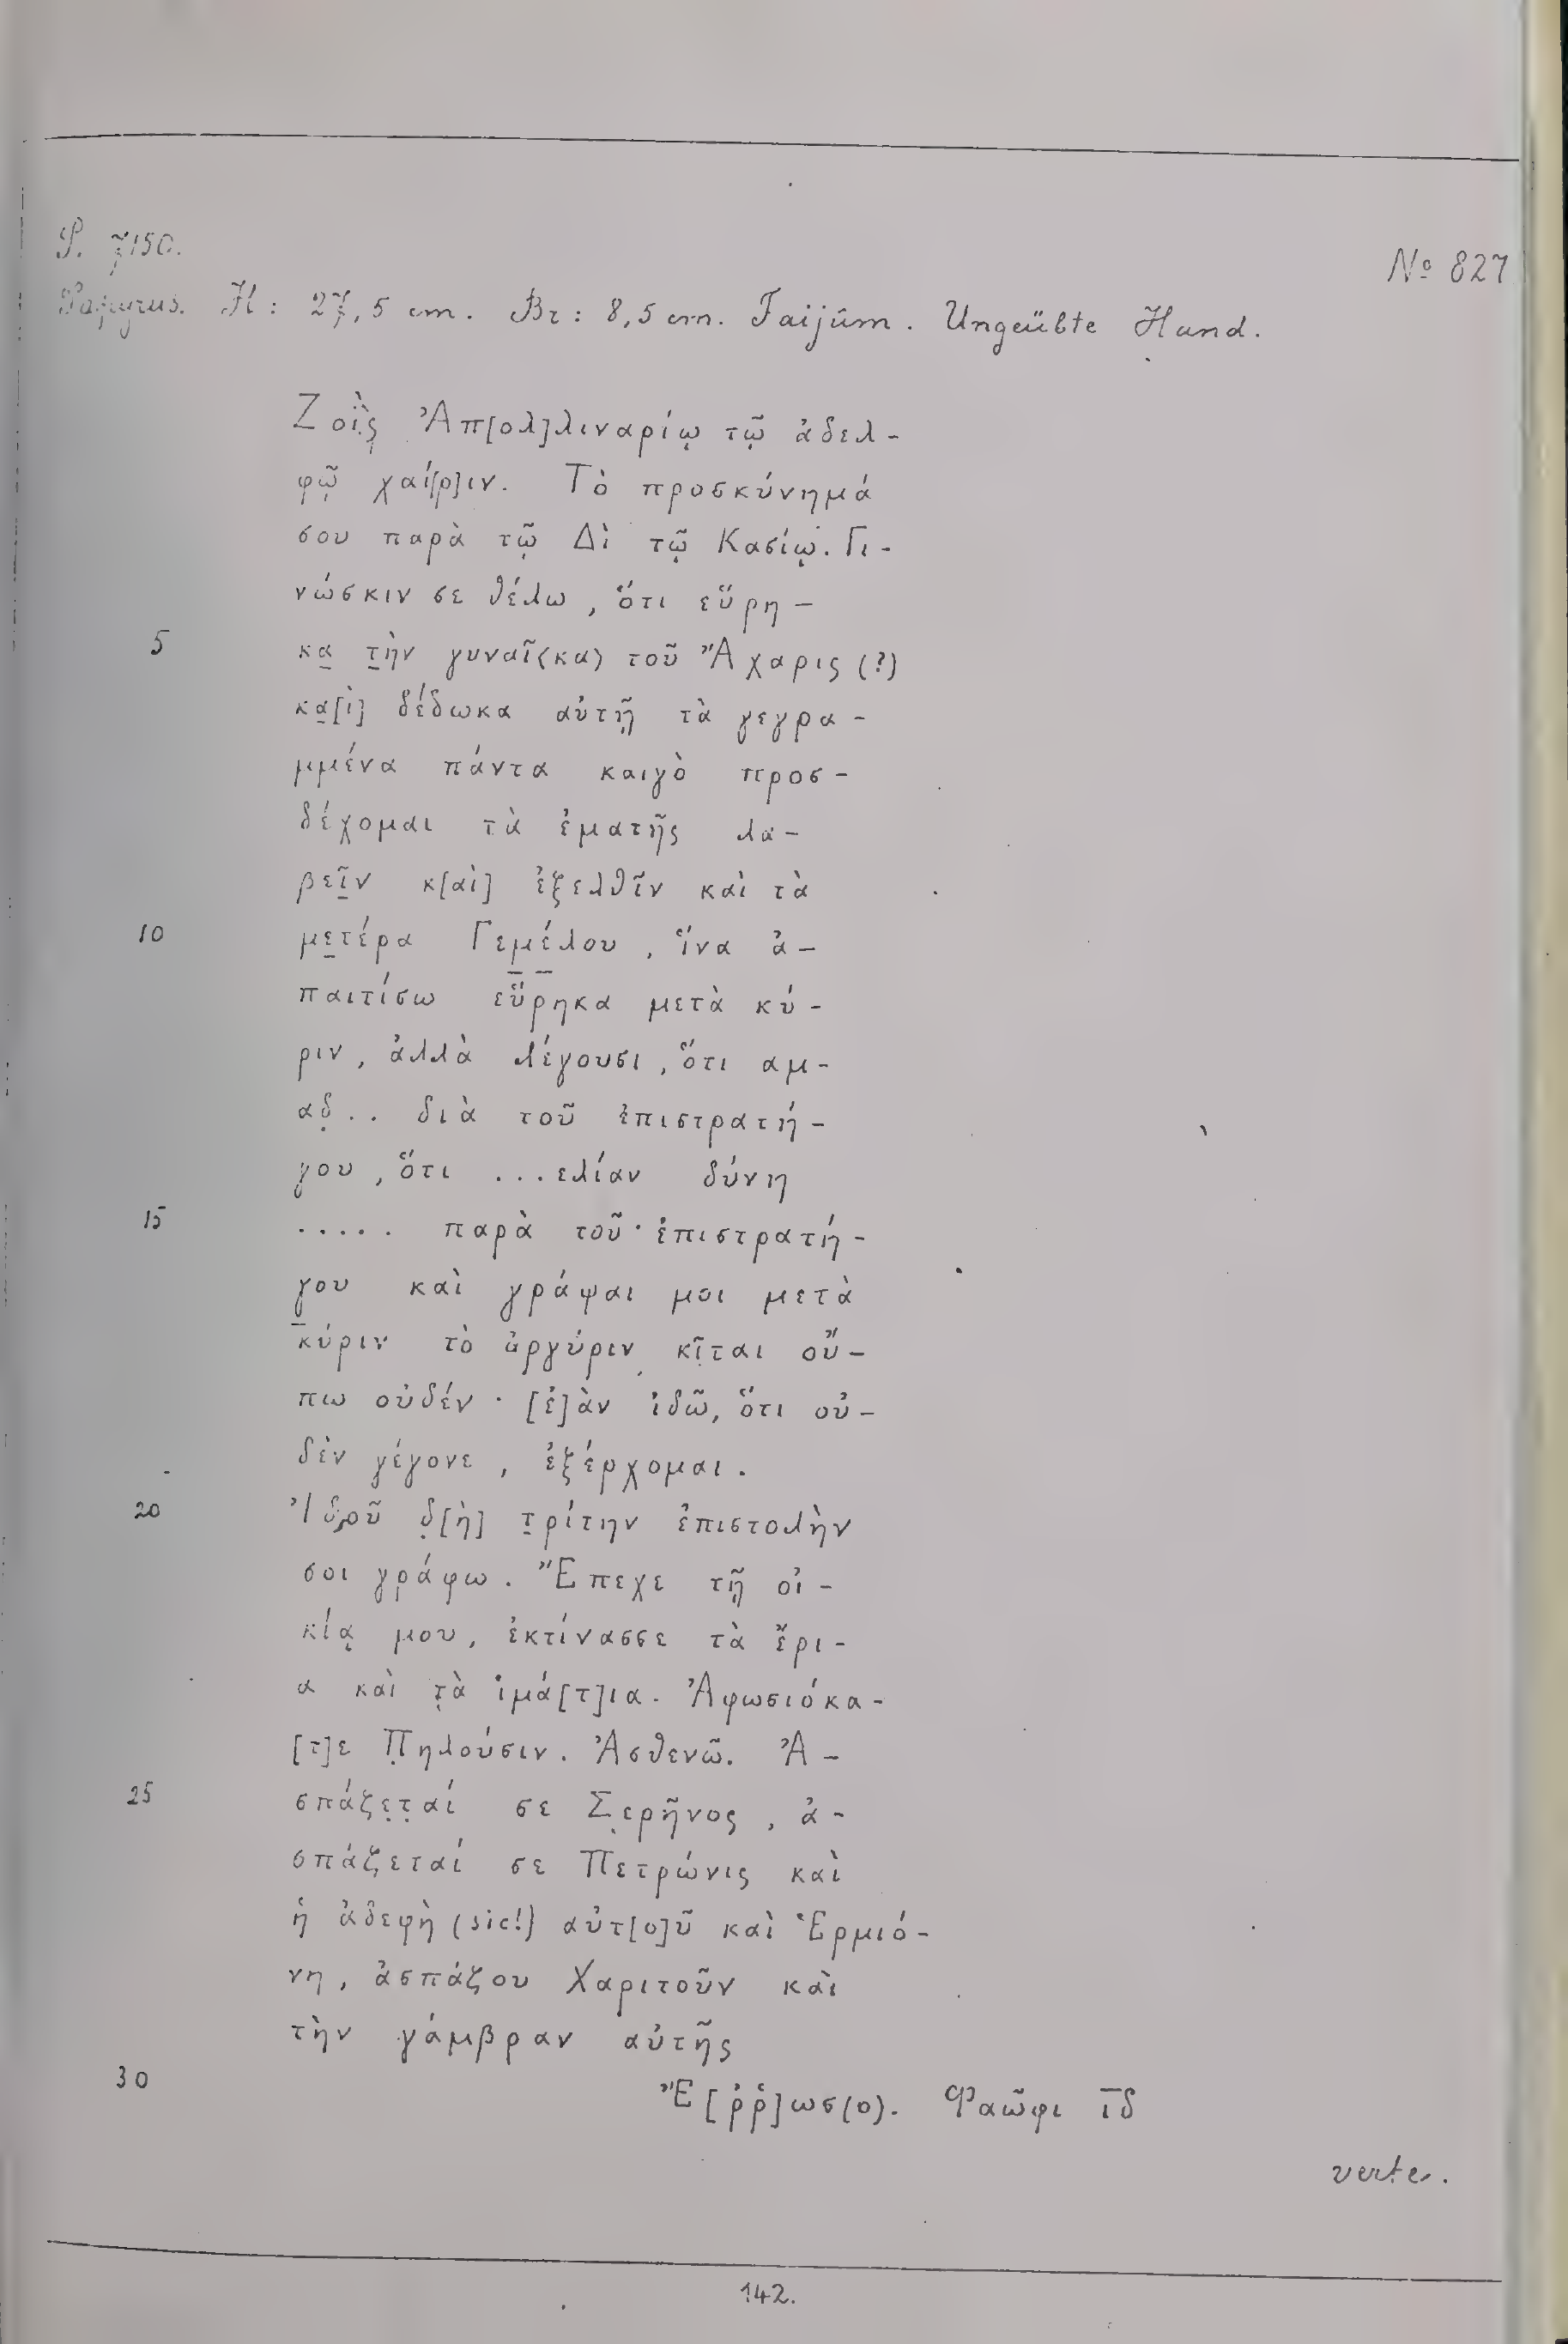 P. 7150.
No 827
Papyrus. H: 27,5 cm. Br: 8,5 cm. Faijûm. Ungeübte Hand.
Ζοῒς Ἀπ[ολ]λιναρίῳ τῷ ἀδελ-
φῷ χαί[ρ]ιν. Τὸ προσκύνημά
σου παρὰ τῷ Δὶ τῷ Κασίῳ. Γι-
νώσκιν σε θέλω, ὅτι εὕρη-
5 κα̣ τ̣ὴν γυναῖ(κα) τοῦ Ἄχαρις (?)
κα̣[ὶ] δέδωκα αὐτῇ τὰ γεγρα-
μμένα πάντα καιγὸ προσ-
δέχομαι τὰ ἐματῆς λα-
βεῖ̣ν κ[αὶ] ἐξελθῖν καὶ τὰ
10 με̣τέρα Γεμέ̣λου, ἵνα ἀ-
παιτίσω εὕρηκα μετὰ κύ-
ριν, ἀλλὰ λέγουσι, ὅτι αμ-
αδ̣.. διὰ τοῦ ἐπιστρατή-
γου, ὅτι ...ελίαν δύνη
15 ..... παρὰ τοῦ ἐπιστρατή-
γου καὶ γράψαι μοι μετὰ
κύριν τὸ ἀργύριν κῖ̣ται οὔ-
πω οὐδέν· [ἐ]ὰν ἰδῶ, ὅτι οὐ-
δὲν γέγονε, ἐξέρχομαι.
20 Ἰδ̣οῦ δ̣[ὴ] τ̣ρίτην ἐπιστολὴν
σοι γράφω. Ἔπεχε τῇ οἰ-
κίᾳ μου, ἐκτίνασσε τὰ ἔρι-
α καὶ τ̣ὰ ἱμά[τ]ια. Ἀφωσιόκα-
[τ]ε Π̣ηλούσιν. Ἀσθενῶ. Ἀ-
25 σπάζε̣τ̣αί σε Σ̣ερῆνος, ἀ-
σπάζεταί σε Πετρώνις καὶ
ἡ ἀδεφὴ (sic!) αὐτ[ο]ῦ καὶ Ἑρμιό-
νη, ἀσπάζου Χαριτοῦν καὶ
τὴν γάμβραν αὐτῆς
30 Ἔ[ῤῥ]ωσ(ο). Φαῶφι ι̅δ
verte.
142.